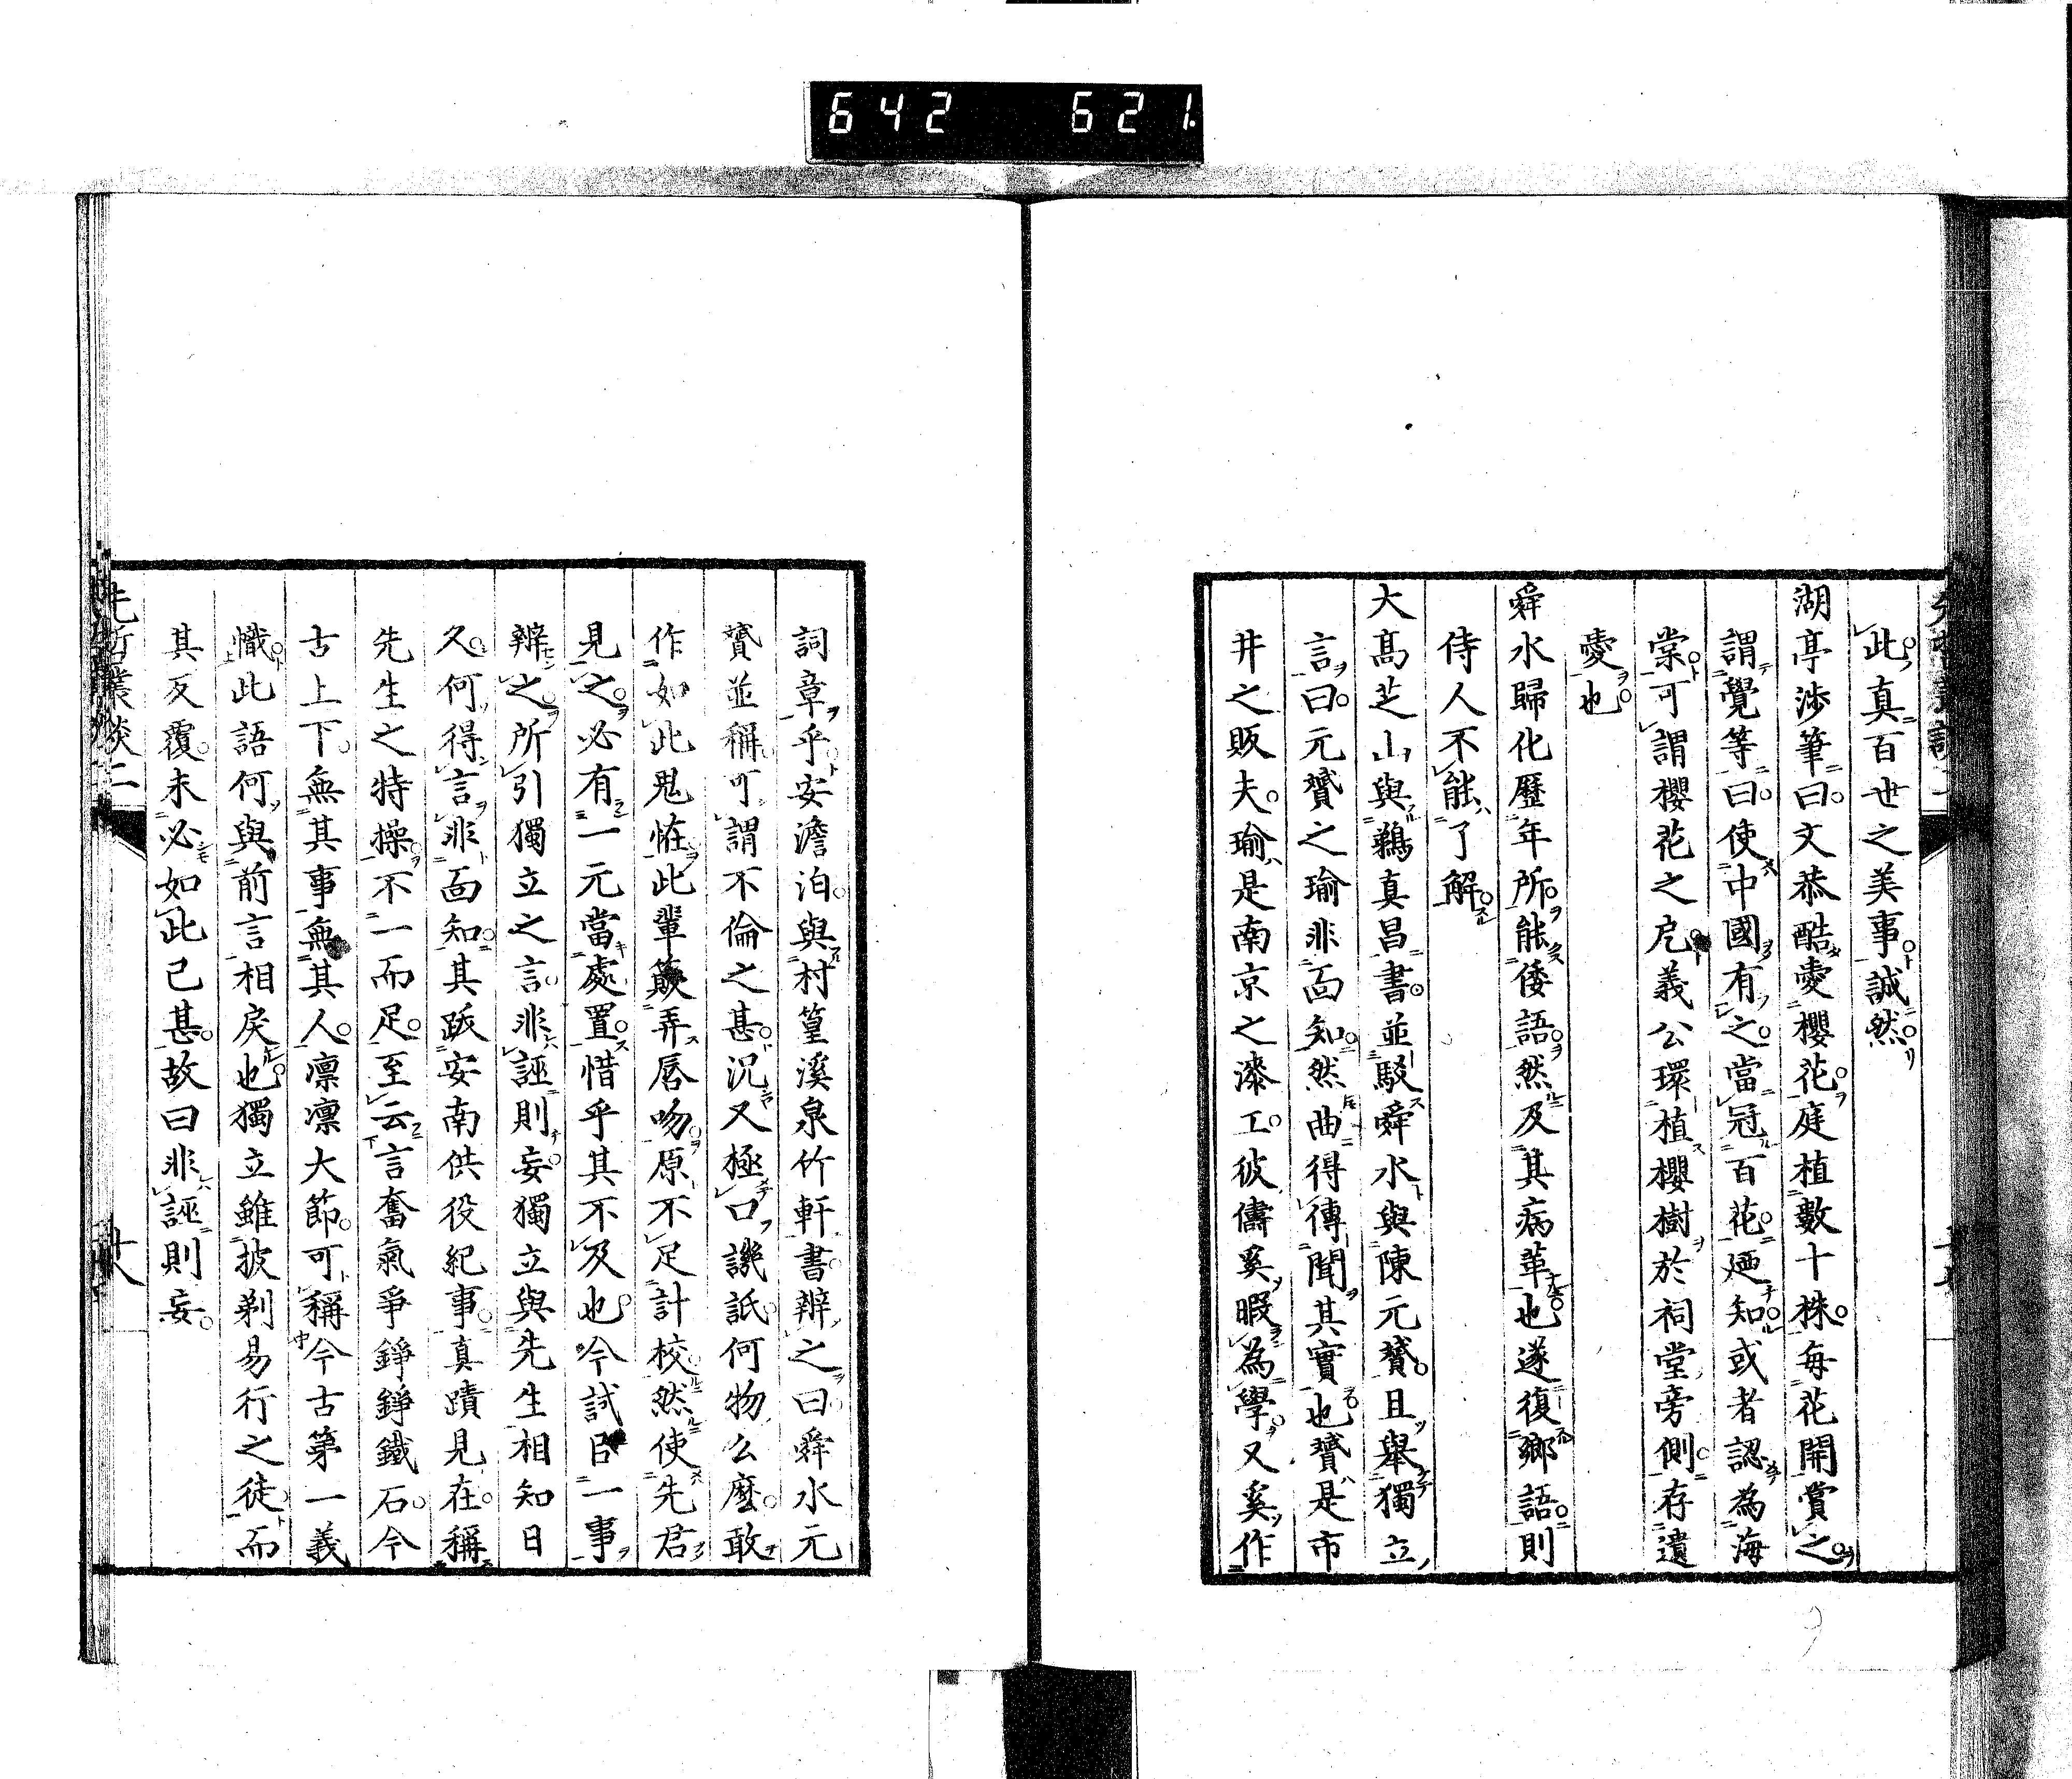 642 621.
此真百世之美事誠然
湖亭涉筆曰文恭酷愛櫻花庭植數十株每花開賞之
謂覺等曰使中國有之當冠百花廼知或者認為海
棠可謂櫻花之厄義公環植櫻樹於祠堂旁側存遺
愛也
舜水歸化歷年所能倭語然及其病革也遂復鄉語則
侍人不能了解
大高芝山與鵜真昌書並駁舜水與陳元贇且舉獨立
言曰元贇之瑜非面知然曲得傳聞其實也贇是市
井之販夫瑜是南京之漆工彼儔奚暇為學又奚作
詞章乎安澹泊與村篁溪泉竹軒書辨之曰舜水元
贇並稱可謂不倫之甚況又極口譏詆何物么麼敢
作如此鬼恠此輩簸弄唇吻原不足計校然使先君
見之必有一元當處置惜乎其不及也今試白一事
辨之所引獨立之言非誣則妄獨立與先生相知日
久何得言非面知其跋安南供役紀事真蹟見在稱
先生之特操不一而足至云言奮氣爭錚錚鐵石今
古上下無其事無其人凛凛大節可稱今古第一義
幟此語何與前言相戾也獨立雖披剃易行之徒而
其反覆未必如此已甚故曰非誣則妄
先哲叢談二
廿八